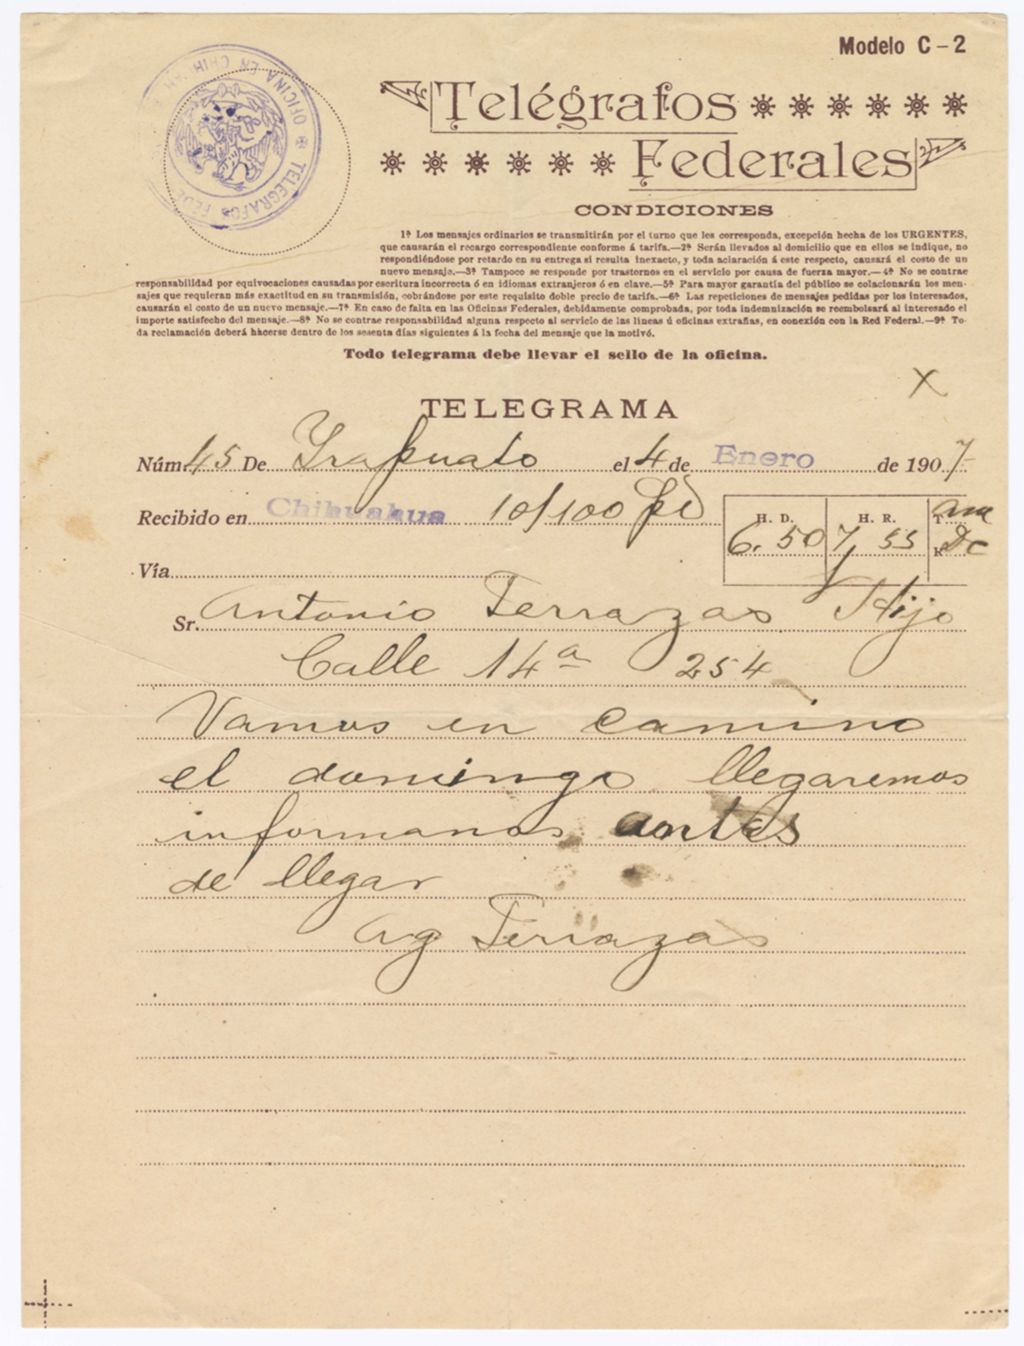 Modelo C-2
Telégrafos
Federales
CONDICIONES
1ª Los mensajes ordinarios se transmitirán por el turno que les corresponda, excepción hecha de los URGENTES,
que causarán el recargo correspondiente conforme á tarifa.—2ª Serán llevados al domicilio que en ellos se indique, no
respondiéndose por retardo en su entrega si resulta inexacto, y toda aclaración á este respecto, causará el costo de un
nuevo mensaje.—3ª Tampoco se responde por trastornos en el servicio por causa de fuerza mayor.—4ª No se contrae
responsabilidad por equivocaciones causadas por escritura incorrecta ó en idiomas extranjeros ó en clave.—5ª Para mayor garantía del público se colacionarán los men-
sajes que requieran más exactitud en su transmisión, cobrándose por este requisito doble precio de tarifa.—6ª Las repeticiones de mensajes pedidas por los interesados,
causarán el costo de un nuevo mensaje.—7ª En caso de falta en las Oficinas Federales, debidamente comprobada, por toda indemnización se reembolsará al interesado el
importe satisfecho del mensaje.—8ª No se contrae responsabilidad alguna respecto al servicio de las líneas ú oficinas extrañas, en conexión con la Red Federal.—9ª To-
da reclamación deberá hacerse dentro de los sesenta días siguientes á la fecha del mensaje que la motivó.
Todo telegrama debe llevar el sello de la oficina.
TELEGRAMA
Núm. 45 De Irapuato el 4 de Enero de 1907
Recibido en Chihuahua 10/100 pd
H. D. 6.50 H. R. 7,55 T.
Vía
Sr. Antonio Terrazas Hijo
Calle 14ª 254
Vamos en camino
el domingo llegaremos
informanos antes
de llegar
Ag Terrazas